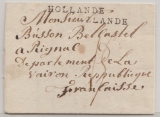 HOLLANDE
Monsieur LANDE
Busson Bellastel
a Rignac
Departement De La
Vairon Republique
francaisse